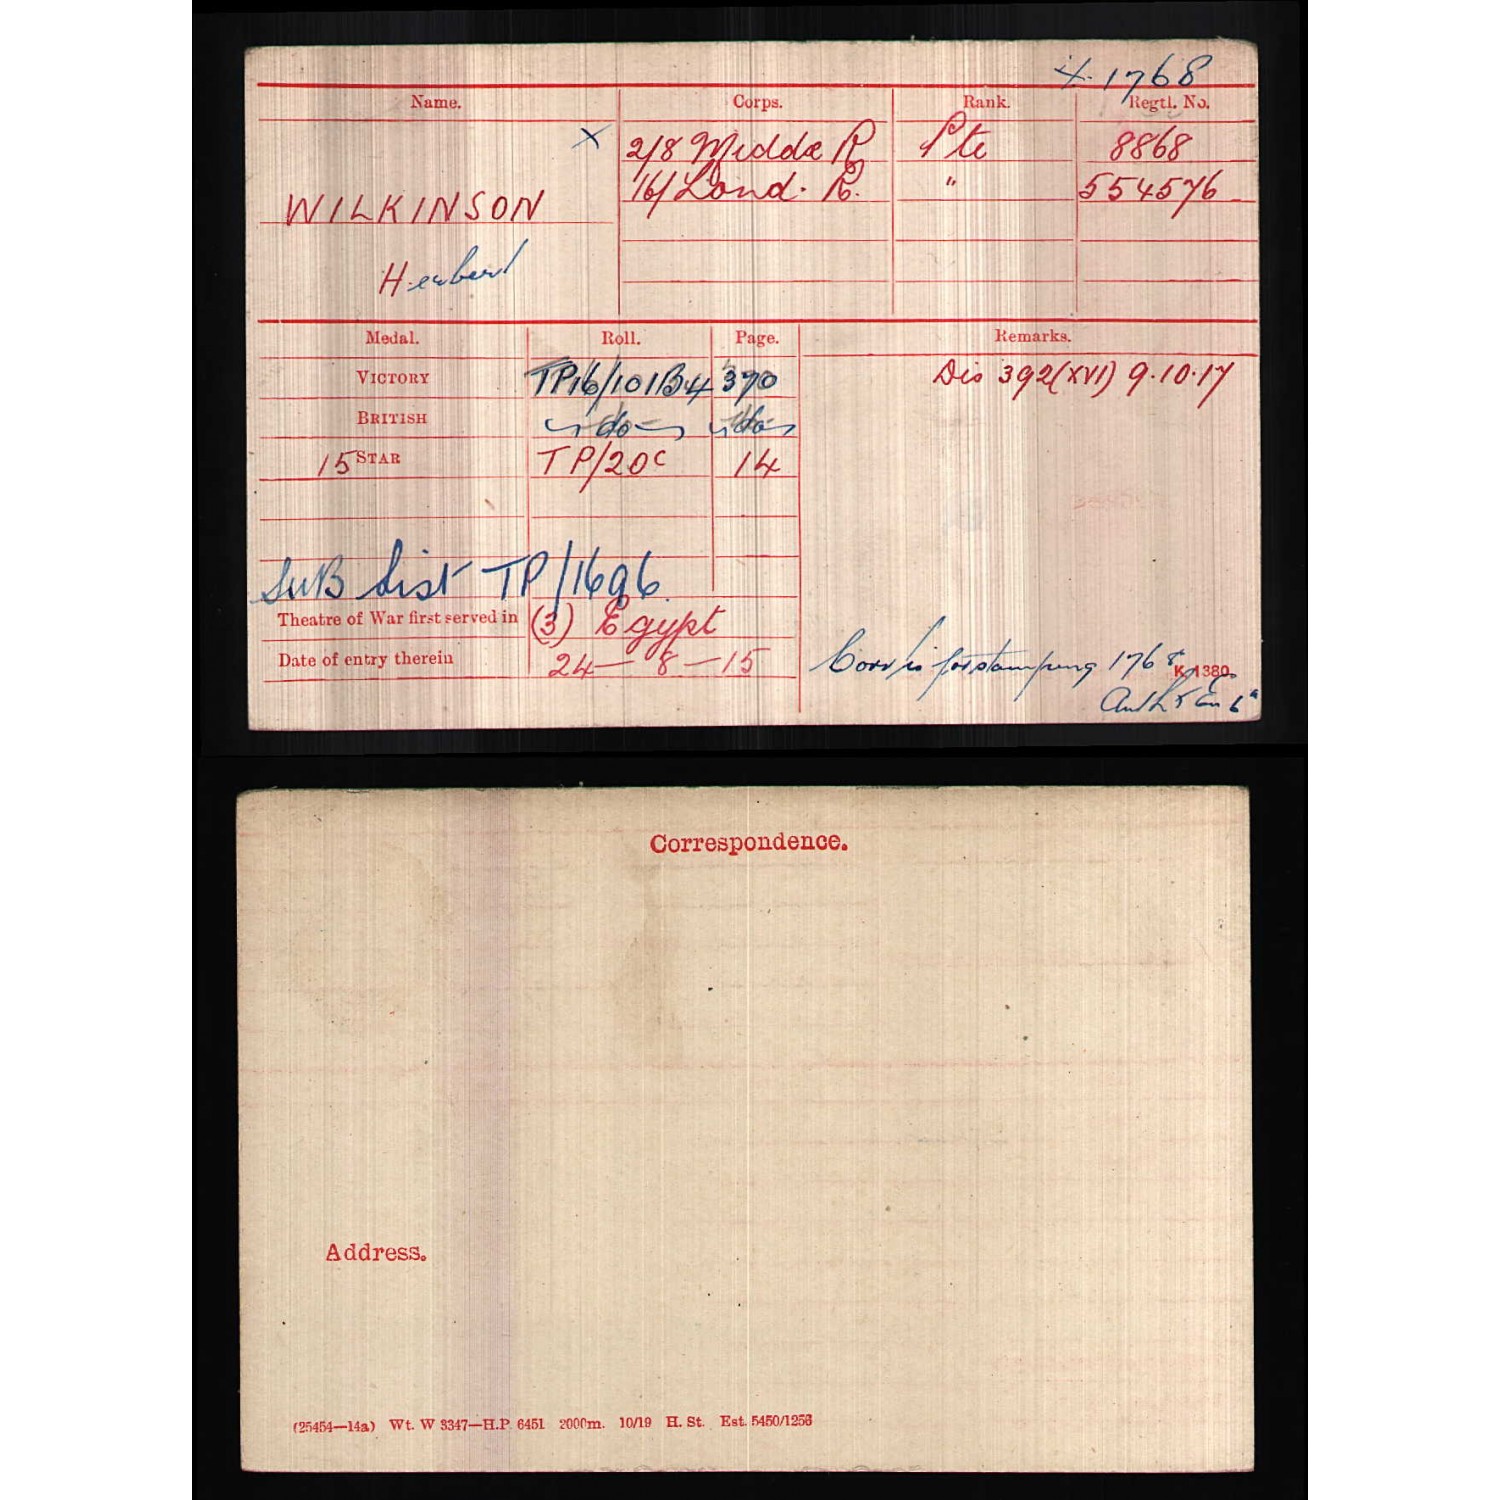 X. 1768
Name. Corps. Rank. Regtl. No.
X 2/8 Middx R Pte 8868
WILKINSON 16/Lond. R. " 554576
Herbert
Medal. Roll. Page. Remarks.
VICTORY TP16/101B4 370 Dis 392(XVI) 9.10.17
BRITISH -do- -do-
15 STAR TP/20C 14
SUB List TP/1696
Theatre of War first served in (3) Egypt
Date of entry therein 24-8-15 1768 K. 1380.
Correspondence.
Address.
(25454—14a) Wt. W 3347—H.P. 6451 2000m. 10/19 H. St. Est. 5450/1256